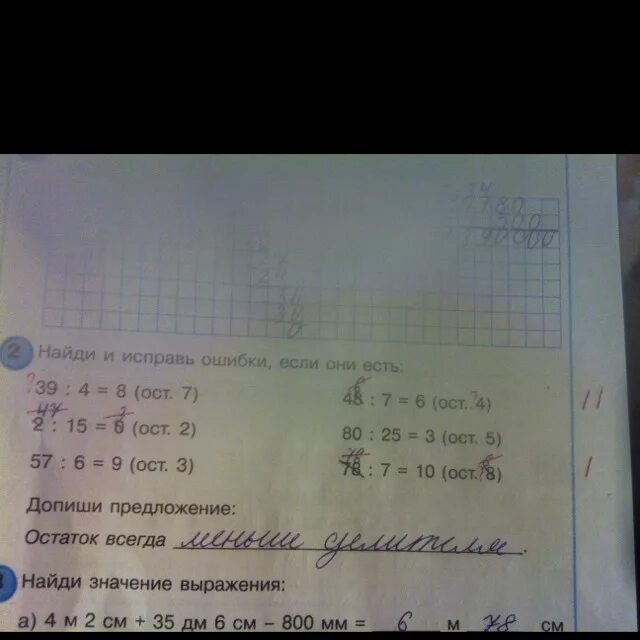 34
900
390000
2 Найди и исправь ошибки, если они есть:
? 39 : 4 = 8 (ост. 7)
48 : 7 = 6 (ост. ? 4)
47 3
2 : 15 = 0 (ост. 2)
80 : 25 = 3 (ост. 5)
57 : 6 = 9 (ост. 3)
78 : 7 = 10 (ост. 8)
Допиши предложение:
Остаток всегда меньше делителя.
Найди значение выражения:
а) 4 м 2 см + 35 дм 6 см – 800 мм = 6 м 78 см